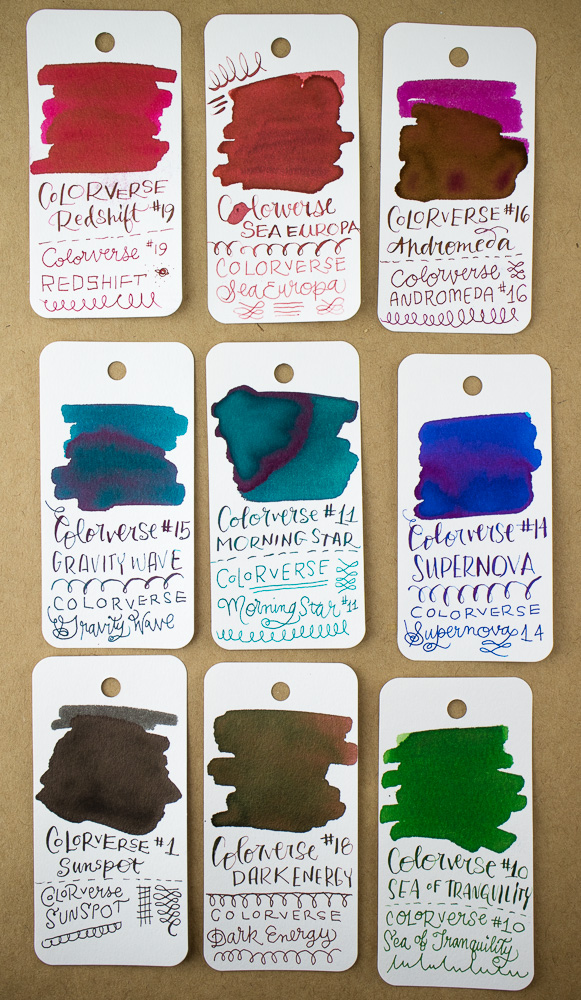 COLORVERSE
Redshift #19
Colorverse #19
REDSHIFT
Colorverse
SEA EUROPA
COLORVERSE
Sea Europa
COLORVERSE #16
Andromeda
Colorverse
ANDROMEDA #16
Colorverse #15
GRAVITY WAVE
COLORVERSE
Gravity Wave
Colorverse #11
MORNING STAR
COLORVERSE
Morning Star #11
Colorverse #14
SUPERNOVA
COLORVERSE
Supernova 14
COLORVERSE #1
Sunspot
COLORverse
SUNSPOT
Colorverse #18
DARK ENERGY
COLORVERSE
Dark Energy
Colorverse #10
SEA OF TRANQUILITY
COLORVERSE #10
Sea of Tranquility